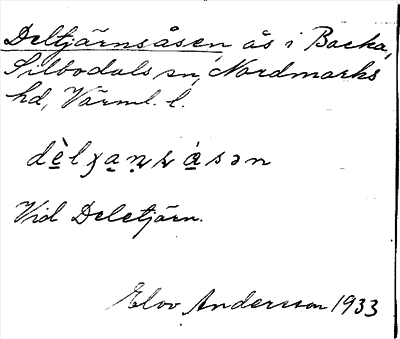 Deltjärnsåsen ås i Backa,
Silbodals sn, Nordmarks
hd, Värml. l.
Vid Deletjärn.
Elov Andersson 1933